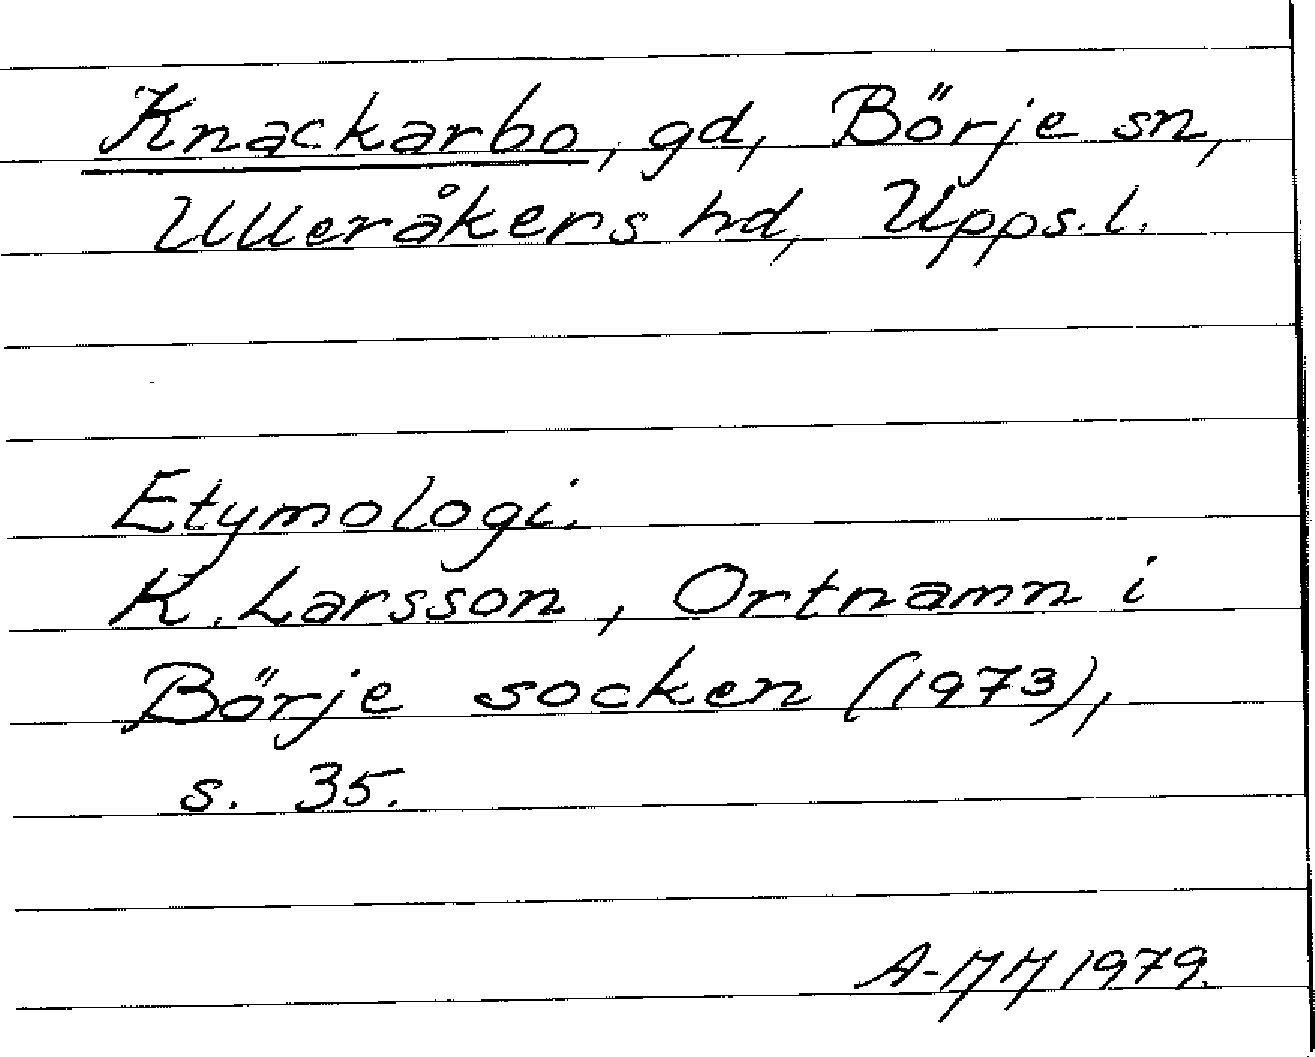 Knackarbo, gd, Börje sn,
Ulleråkers hd, Upps. l.
Etymologi.
K. Larsson, Ortnamn i
Börje socken (1973),
s. 35.
A-MM 1979.